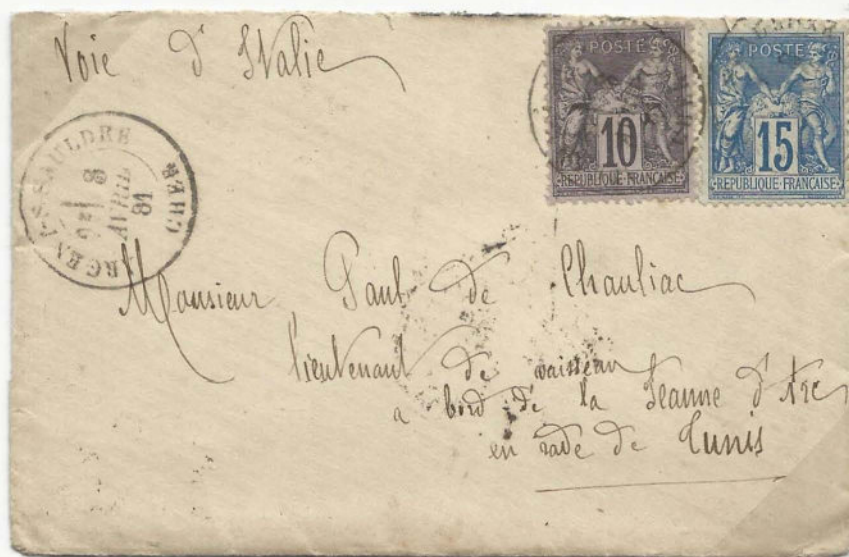 Voie d'Italie
POSTE
10
REPUBLIQUE FRANCAISE
POSTE
15
REPUBLIQUE FRANCAISE
ARGENT-S-SAULDRE
8
AVRIL
81
CHER
Monsieur Paul de Chauliac
lieutenant de vaisseau
a bord de la Jeanne d'Arc
en rade de Tunis